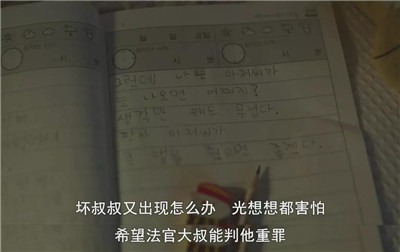 그런데 나쁜 아저씨가
또 나오면 어쩌지?
생각만 해도 무섭다.
판사 아저씨가
坏叔叔又出现怎么办 光想想都害怕
希望法官大叔能判他重罪